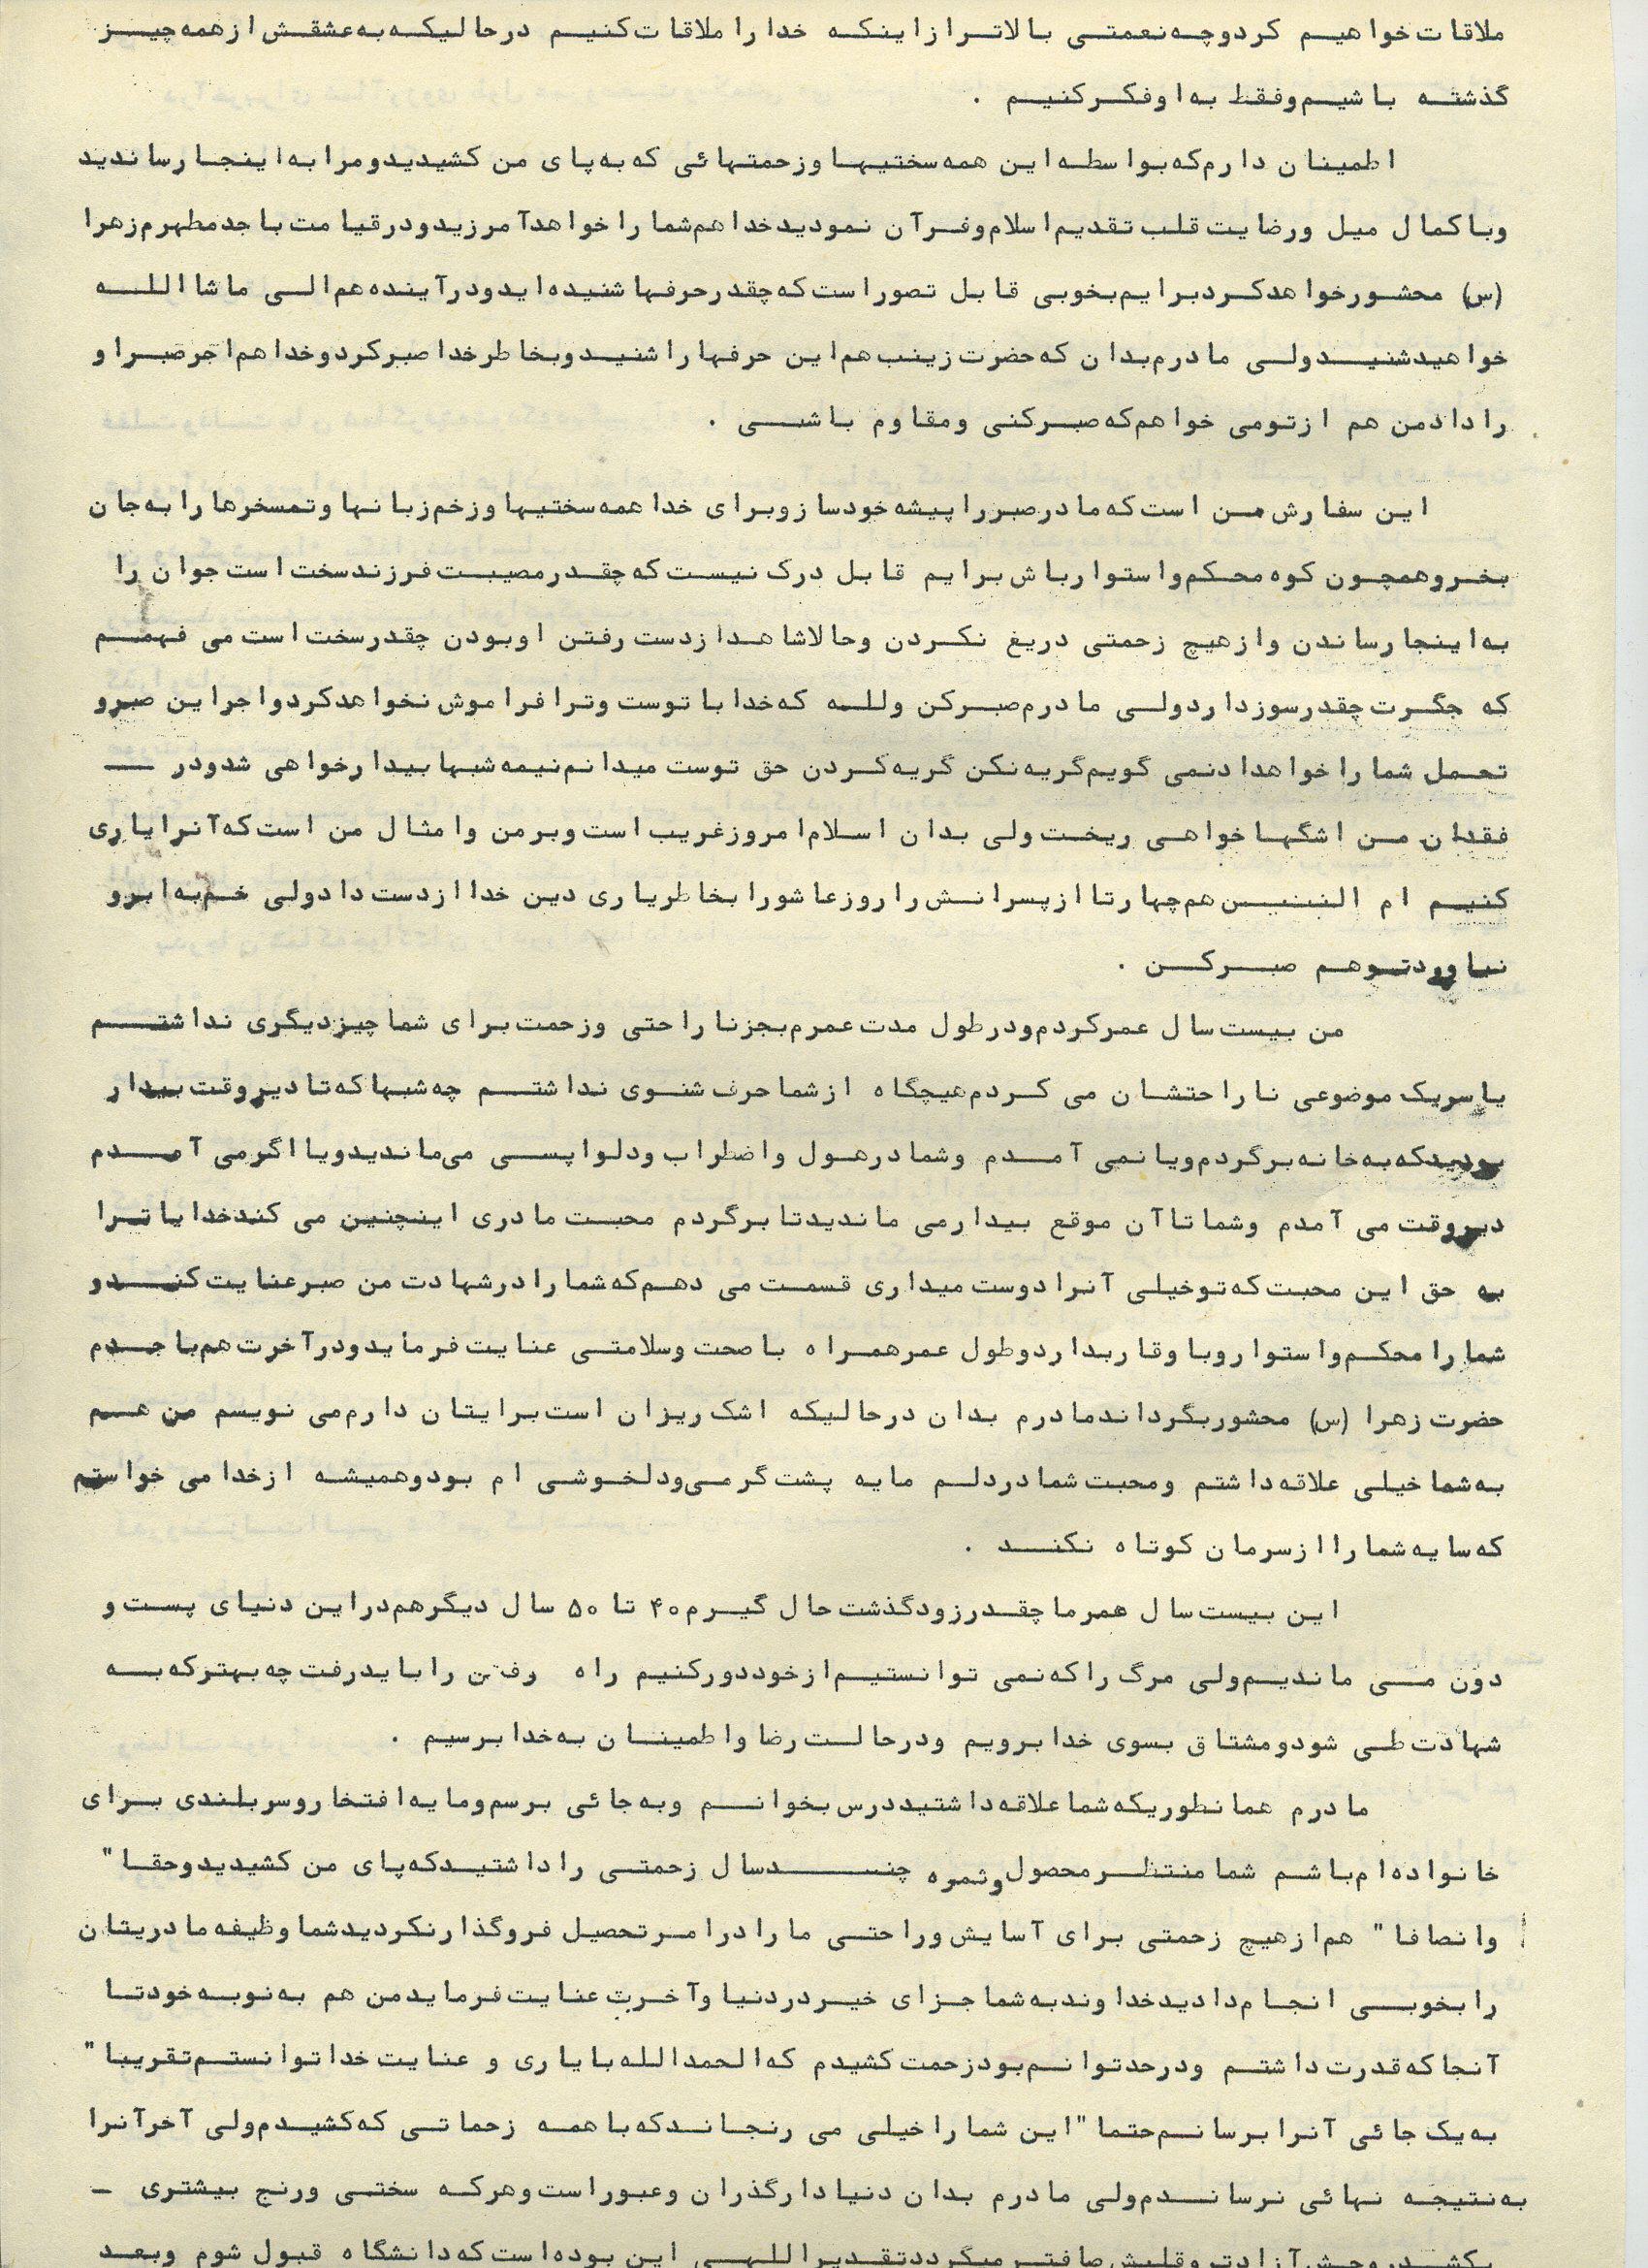 ملاقات خواهیم کرد و چه نعمتی بالاتر از اینکه خدا را ملاقات کنیم در حالیکه به عشقش از همه چیز
گذشته باشیم و فقط به او فکر کنیم .
اطمینان دارم که بواسطه این همه سختیها و زحمتهائی که به پای من کشیدید و مرا به اینجا رساندید
و با کمال میل و رضایت قلب تقدیم اسلام و قرآن نمودید خدا هم شما را خواهد آمرزید و در قیامت با جد مطهرم زهرا
(س) محشور خواهد کرد برایم بخوبی قابل تصور است که چقدر حرفها شنیده اید و در آینده هم الی ماشا الله
خواهید شنید ولی مادرم بدان که حضرت زینب هم این حرفها را شنید و بخاطر خدا صبر کرد و خدا هم اجر صبر او
را داد من هم از تو می خواهم که صبر کنی و مقاوم باشی .
این سفارش من است که مادر صبر را پیشه خود ساز و برای خدا همه سختیها و زخم زبانها و تمسخرها را به جان
بخر و همچون کوه محکم و استوار باش برایم قابل درک نیست که چقدر مصیبت فرزند سخت است جوان را
به اینجا رساندن و از هیچ زحمتی دریغ نکردن و حالا شاهد از دست رفتن او بودن چقدر سخت است می فهمم
که جگرت چقدر سوز دارد ولی مادرم صبر کن والله که خدا با توست و ترا فراموش نخواهد کرد و اجر این صبر و
تحمل شما را خواهد داد نمی گویم گریه نکن گریه کردن حق توست میدانم نیمه شبها بیدار خواهی شد و در ــ
فقدان من اشگها خواهی ریخت ولی بدان اسلام امروز غریب است و بر من و امثال من است که آنرا یاری
کنیم ام البنین هم چهار تا از پسرانش را روز عاشورا بخاطر یاری دین خدا از دست داد ولی خم به ابرو
نیاورد تو هم صبر کن .
من بیست سال عمر کردم و در طول مدت عمرم بجز ناراحتی و زحمت برای شما چیز دیگری نداشتم
یا سر یک موضوعی ناراحتشان می کردم هیچگاه از شما حرف شنوی نداشتم چه شبها که تا دیر وقت بیدار
بودید که به خانه برگردم و یا نمی آمدم و شما در هول و اضطراب و دلواپسی می ماندید و یا اگر می آمدم
دیر وقت می آمدم و شما تا آن موقع بیدار می ماندید تا برگردم محبت مادری اینچنین می کند خدایا ترا
به حق این محبت که تو خیلی آنرا دوست میداری قسمت می دهم که شما را در شهادت من صبر عنایت کند و
شما را محکم و استوار و با وقار بدارد و طول عمر همراه با صحت و سلامتی عنایت فرماید و در آخرت هم با جدم
حضرت زهرا (س) محشور بگرداند مادرم بدان در حالیکه اشک ریزان است برایتان دارم می نویسم من هم
به شما خیلی علاقه داشتم و محبت شما در دلم مایه پشت گرمی و دلخوشی ام بود و همیشه از خدا می خواستم
که سایه شما را از سرمان کوتاه نکند .
این بیست سال عمر ما چقدر زود گذشت حال گیرم ۴۰ تا ۵۰ سال دیگر هم در این دنیای پست و
دون می ماندیم ولی مرگ را که نمی توانستیم از خود دور کنیم راه رفتن را باید رفت چه بهتر که به
شهادت طی شود و مشتاق بسوی خدا برویم و در حالت رضا و اطمینان به خدا برسیم .
مادرم همانطوریکه شما علاقه داشتید درس بخوانم و به جائی برسم و مایه افتخار و سربلندی برای
خانواده ام باشم شما منتظر محصول و ثمره چند سال زحمتی را داشتید که پای من کشیدید و حقا"
و انصافا" هم از هیچ زحمتی برای آسایش و راحتی ما را در امر تحصیل فروگذار نکردید شما وظیفه مادریتان
را بخوبی انجام دادید خداوند به شما جزای خیر در دنیا و آخرت عنایت فرماید من هم به نوبه خود تا
آنجا که قدرت داشتم و در حد توانم بود زحمت کشیدم که الحمدالله با یاری و عنایت خدا توانستم تقریبا"
به یک جائی آنرا برسانم حتما" این شما را خیلی می رنجاند که با همه زحماتی که کشیدم ولی آخر آنرا
به نتیجه نهائی نرساندم ولی مادرم بدان دنیا دار گذران و عبور است و هر که سختی و رنج بیشتری ــ
بکشد روحش آزادتر و قلبش صافتر میگردد تقدیر اللهی این بوده است که دانشگاه قبول شوم و بعد